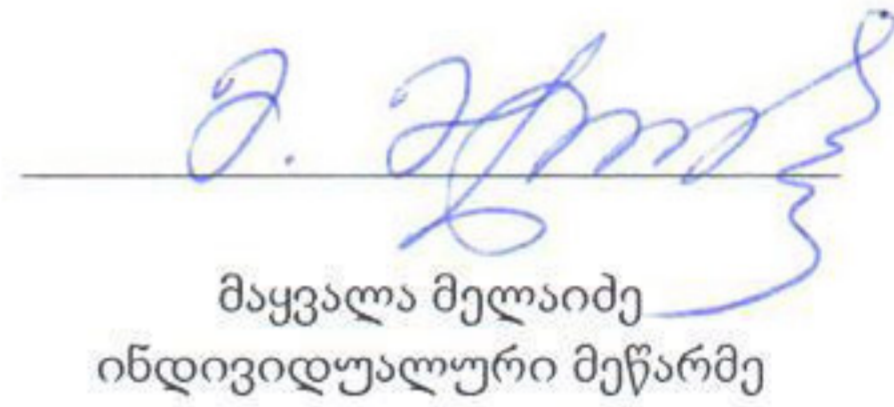 მაყვალა მელაიძე
ინდივიდუალური მეწარმე